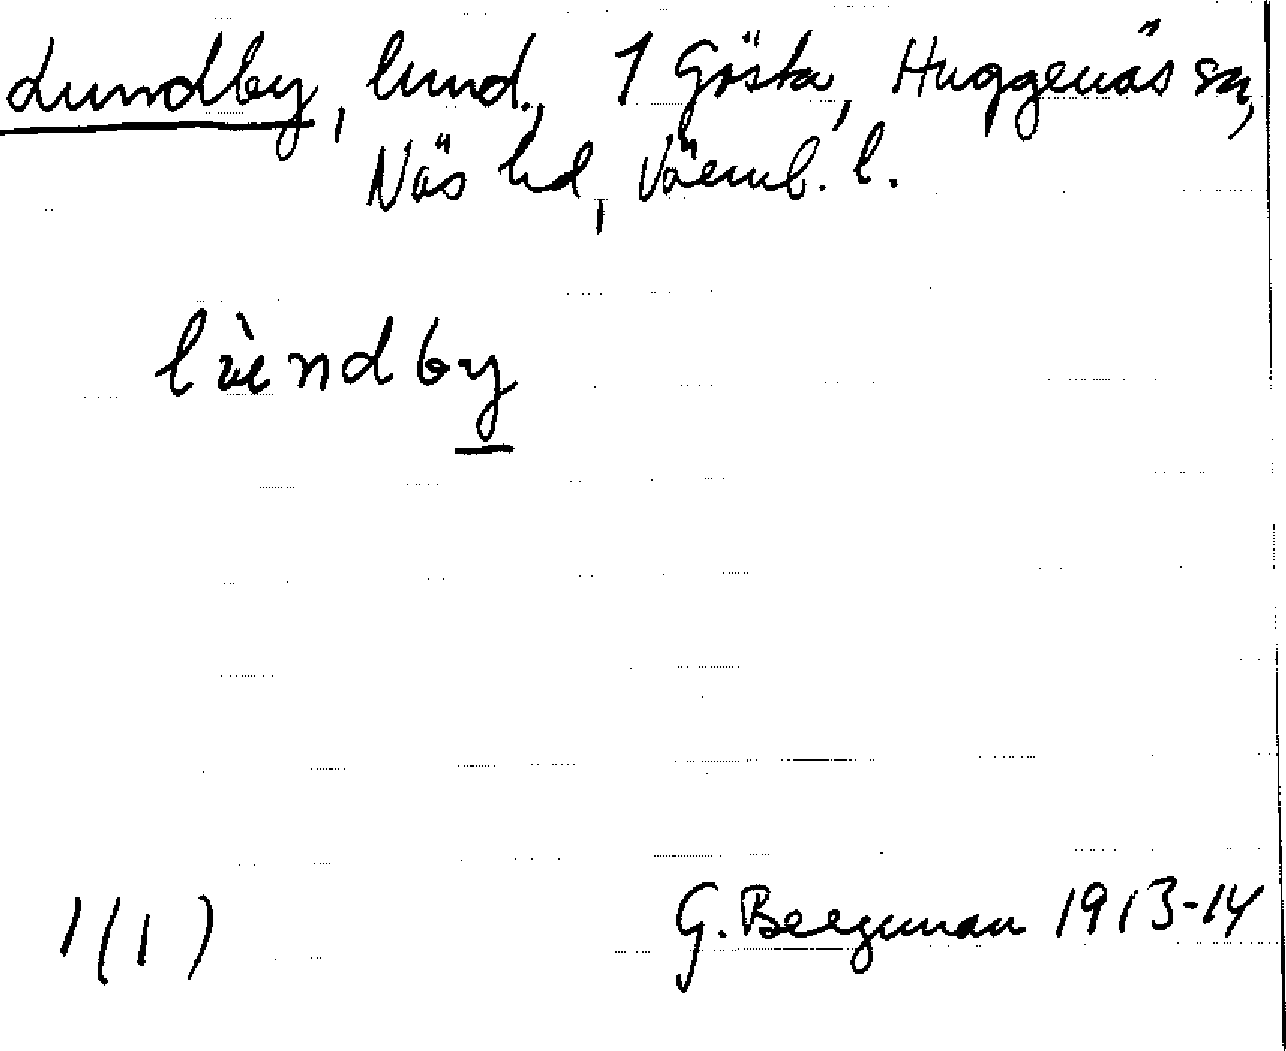 Lundby, lund., 1 Gösta, Huggenäs sn,
Näs hd, Värml. l.
lùndby
1(1)
G. Bergman 1913-14